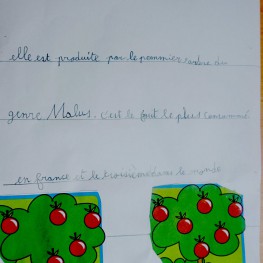 elle est produite par le pommier arbre du
genre Malus. c'est le fruit le plus consommé
en france et le troisième dans le monde